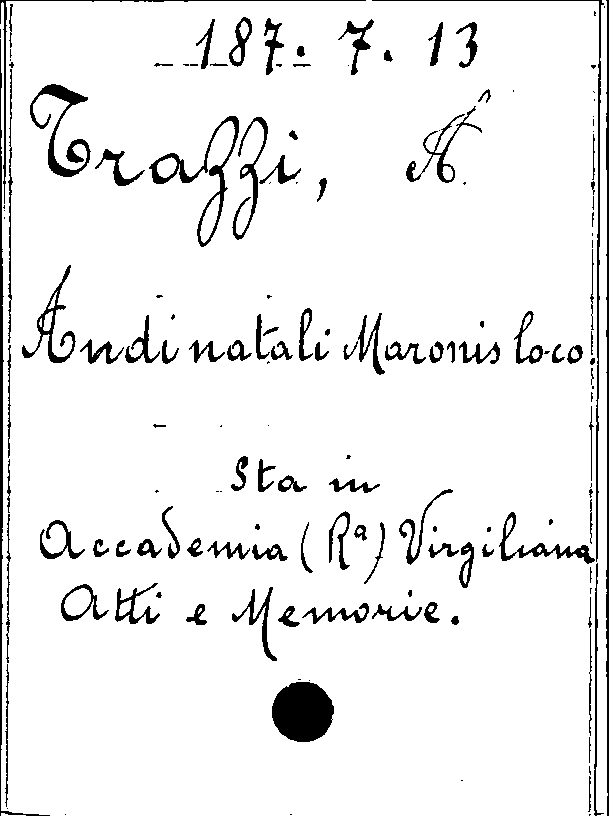 187. 7. 13
Trazzi, A
Andi natali Maronis loco.
Sta in
Accademia (Rª) Virgiliana
Atti e Memorie.